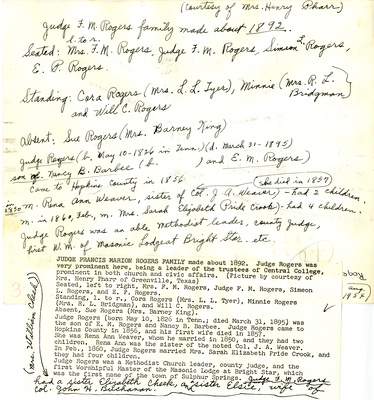 (Courtesy of Mrs. Henry Pharr)
Judge F. M. Rogers family made about 1892.
l. to r.
Seated: Mrs. F. M. Rogers, Judge F. M. Rogers, Simeon L. Rogers,
E. P. Rogers.
Standing: Cora Rogers (Mrs. L. L. Tyer), Minnie (Mrs. R. L.
Bridgman)
and Will C. Rogers
Absent: Sue Rogers (Mrs. Barney King)
Judge Rogers (b. May 10-1826 in Tenn.) (d. March 31-1895)
son of Nancy B. Barbee (b. ) and E. M. Rogers)
Came to Hopkins County in 1856
(she died in 1857)
in 1850 m. Rena Ann Weaver, sister of Col. J. A. Weaver) - had 2 children
m. in 1860, Feb., m. Mrs. Sarah Elizabeth (Pride Crook) - had 4 children.
Judge Rogers was an able Methodist leader, county judge,
first W. M. of Masonic Lodge at Bright Star, etc.
JUDGE FRANCIS MARION ROGERS FAMILY made about 1892. Judge Rogers was
very prominent here, being a leader of the trustees of Central College,
prominent in both church and civic affairs. (Picture by courtesy of
Mrs. Henry Pharr of Greenville, Texas)
Seated, left to right, Mrs. F. M. Rogers, Judge F. M. Rogers, Simeon
L. Rogers, and E. P. Rogers.
Standing, l. to r., Cora Rogers (Mrs. L. L. Tyer), Minnie Rogers
(Mrs. R. L. Bridgman), and Will C. Rogers.
Absent, Sue Rogers, (Mrs. Barney King).
Judge Rogers (born May 10, 1826 in Tenn., died March 31, 1895) was
the son of E. M. Rogers and Nancy B. Barbee. Judge Rogers came to
Hopkins County in 1856, and his first wife died in 1857.
She was Rena Ann Weaver, whom he married in 1850, and they had two
children. Rena Ann was the sister of the noted Col. J. A. Weaver.
In Feb., 1860, Judge Rogers married Mrs. Sarah Elizabeth Pride Crook, and
they had four children.
Judge Rogers was a Methodist Church leader, county judge, and the
first Worshipful Master of the Masonic Lodge at Bright Star, which
was the first name of the town of Sulphur Springs. Judge F. M. Rogers
had a sister Elizabeth Cheek, an sister Elsie, wife of
Col. John H. Bilchanan.